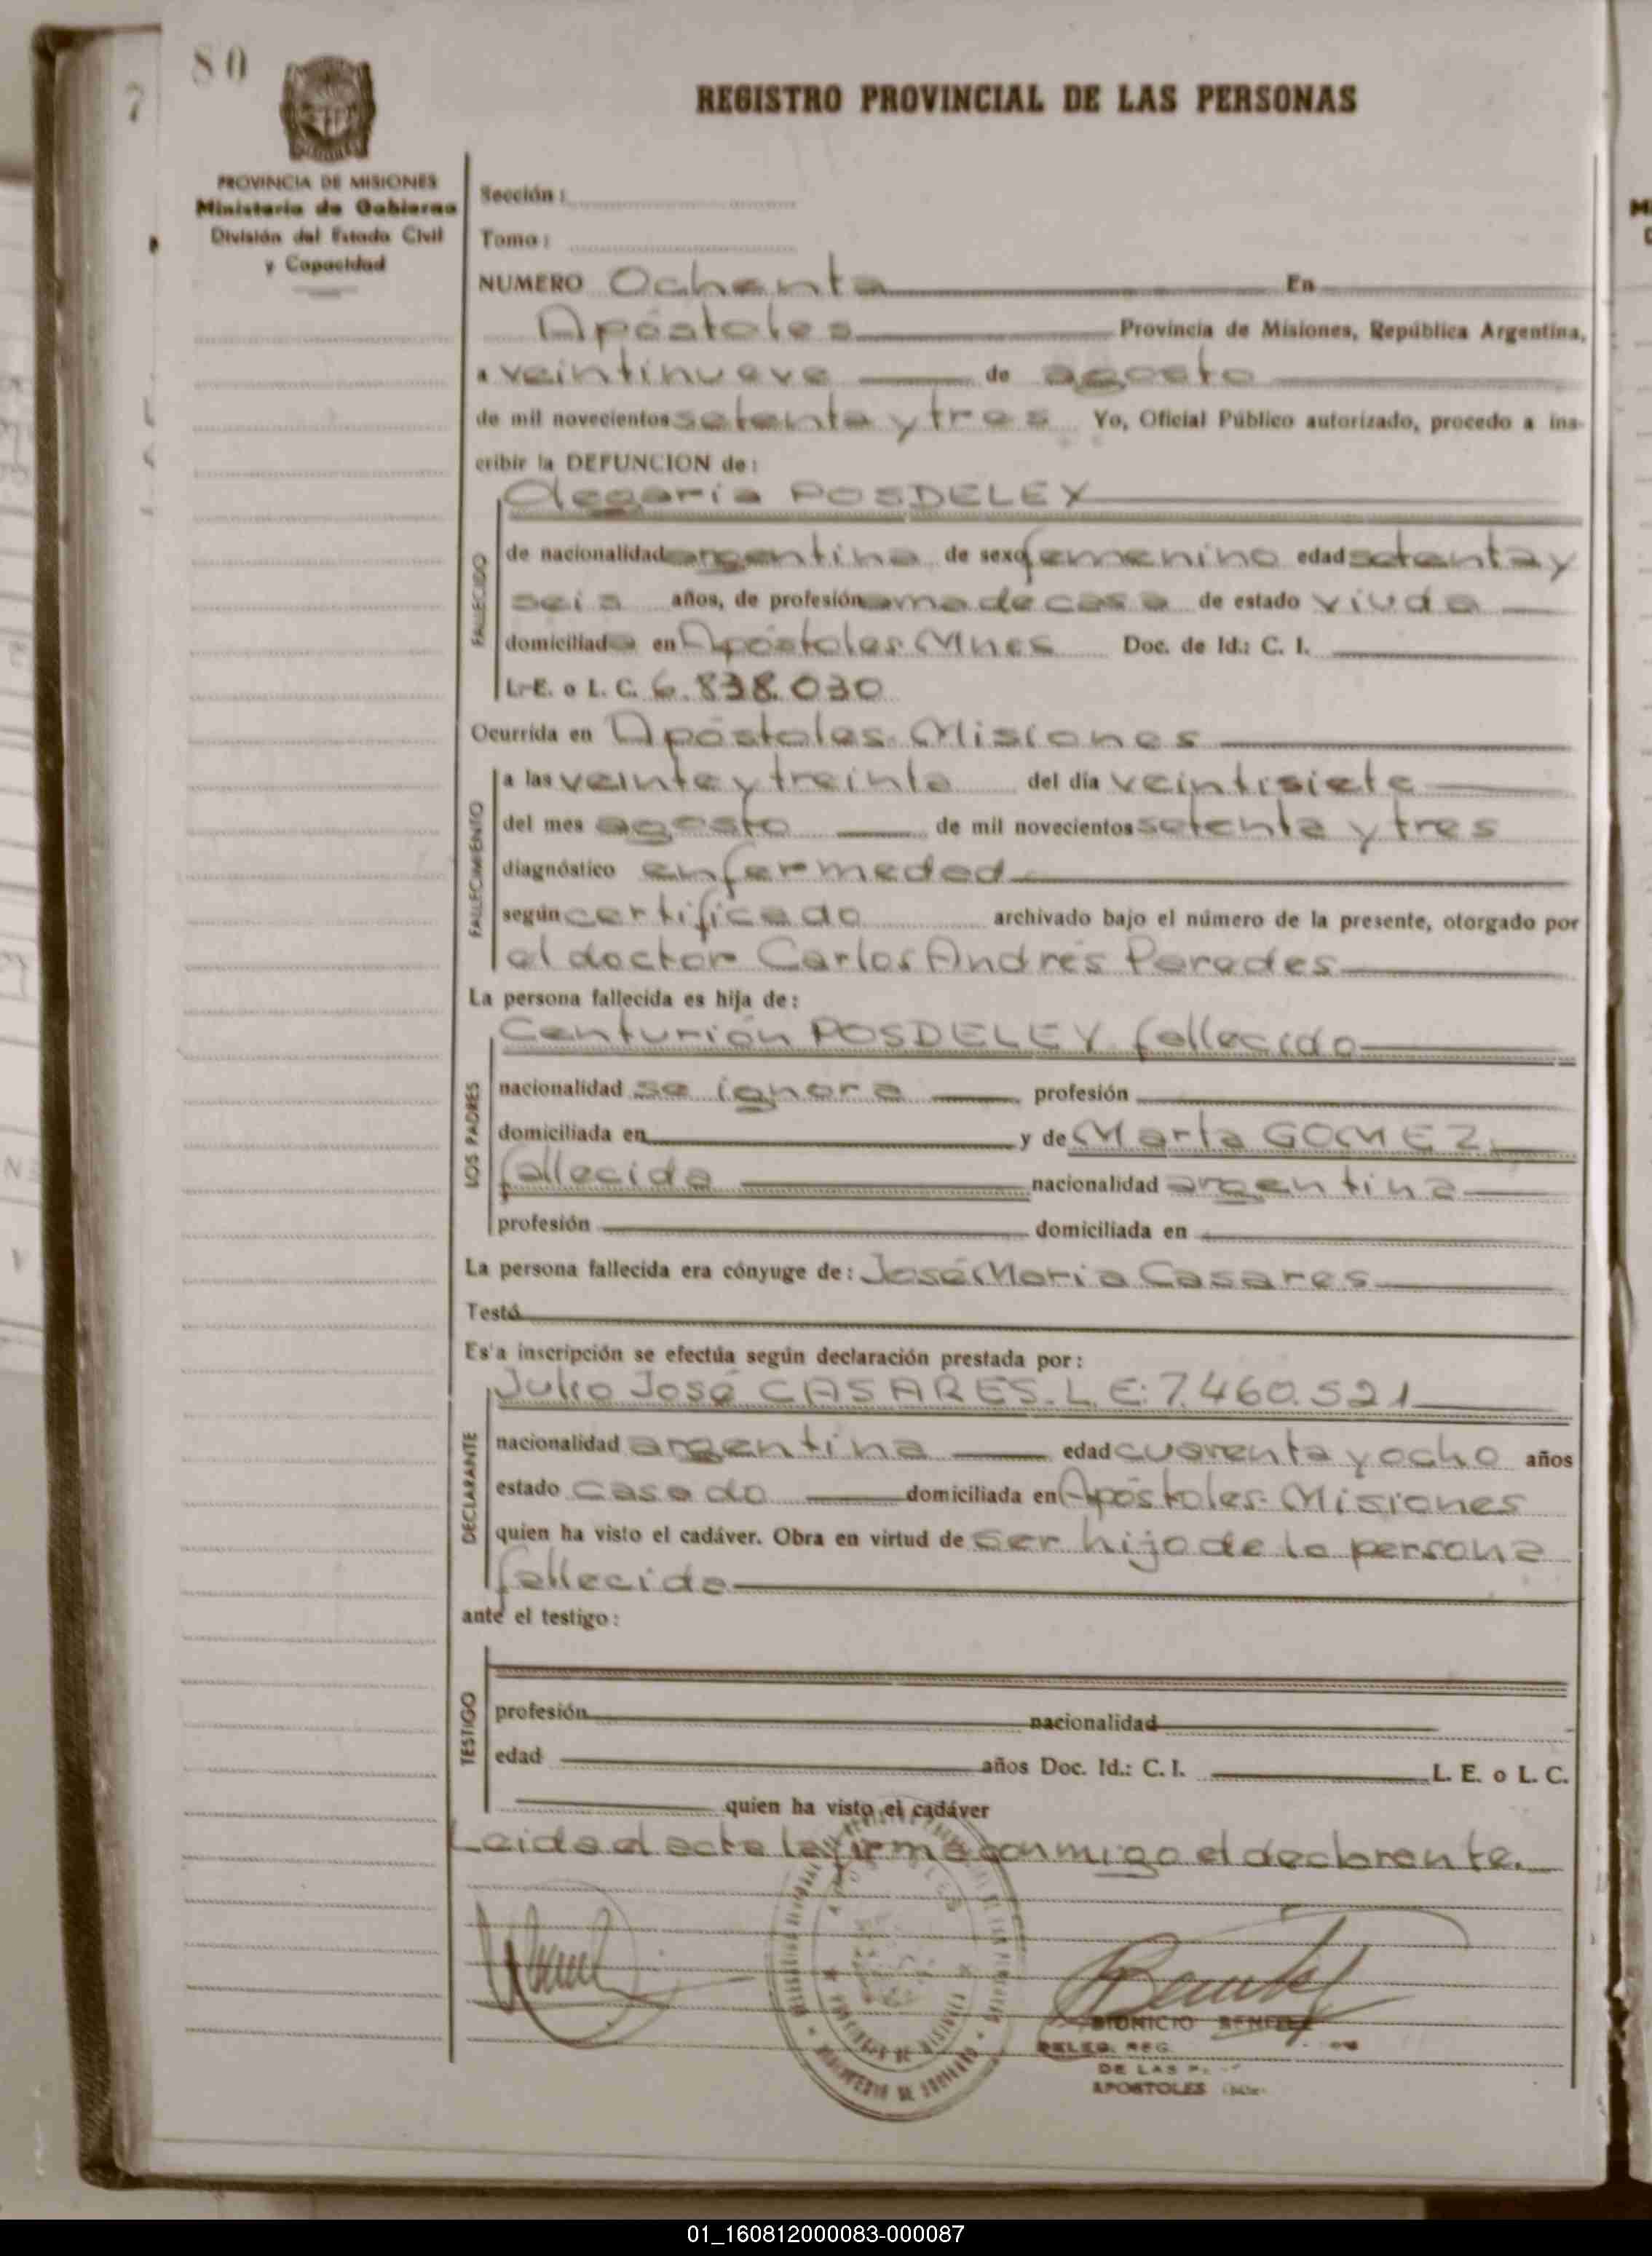 80
7
REGISTRO PROVINCIAL DE LAS PERSONAS
PROVINCIA DE MISIONES
Ministerio de Gobierno
División del Estado Civil
y Capacidad
Sección:
Tomo:
NUMERO Ochenta En
Apóstoles Provincia de Misiones, República Argentina,
a veintinueve de agosto
de mil novecientos setenta y tres Yo, Oficial Público autorizado, procedo a ins-
cribir la DEFUNCION de:
Olegaria POSDELEY
FALLECIDO
de nacionalidad argentina de sexo femenino edad setenta y
seis años, de profesión ama de casa de estado viuda
domiciliada en Apóstoles Mnes Doc. de Id.: C. I.
L. E. o L. C. 6.838.030
Ocurrida en Apóstoles Misiones
FALLECIMIENTO
a las veinte y treinta del día veintisiete
del mes agosto de mil novecientos setenta y tres
diagnóstico enfermedad
según certificado archivado bajo el número de la presente, otorgado por
el doctor Carlos Andrés Paredes
La persona fallecida es hija de:
LOS PADRES
Centurión POSDELEY fallecido
nacionalidad se ignora profesión
domiciliada en y de Marta GOMEZ
fallecida nacionalidad argentina
profesión domiciliada en
La persona fallecida era cónyuge de: José María Casares
Testó
Es'a inscripción se efectúa según declaración prestada por:
DECLARANTE
Julio José CASARES. L. E: 7.460.521
nacionalidad argentina edad cuarenta y ocho años
estado casado domiciliada en Apóstoles. Misiones
quien ha visto el cadáver. Obra en virtud de ser hijo de la persona
fallecida
ante el testigo:
TESTIGO
profesión nacionalidad
edad años Doc. Id.: C. I. L. E. o L. C.
quien ha visto el cadáver
Leida el acta la firma conmigo el declarente.
DIONICIO BENITEZ
DELEG. REG.
DE LAS P.
APOSTOLES
01_160812000083-000087